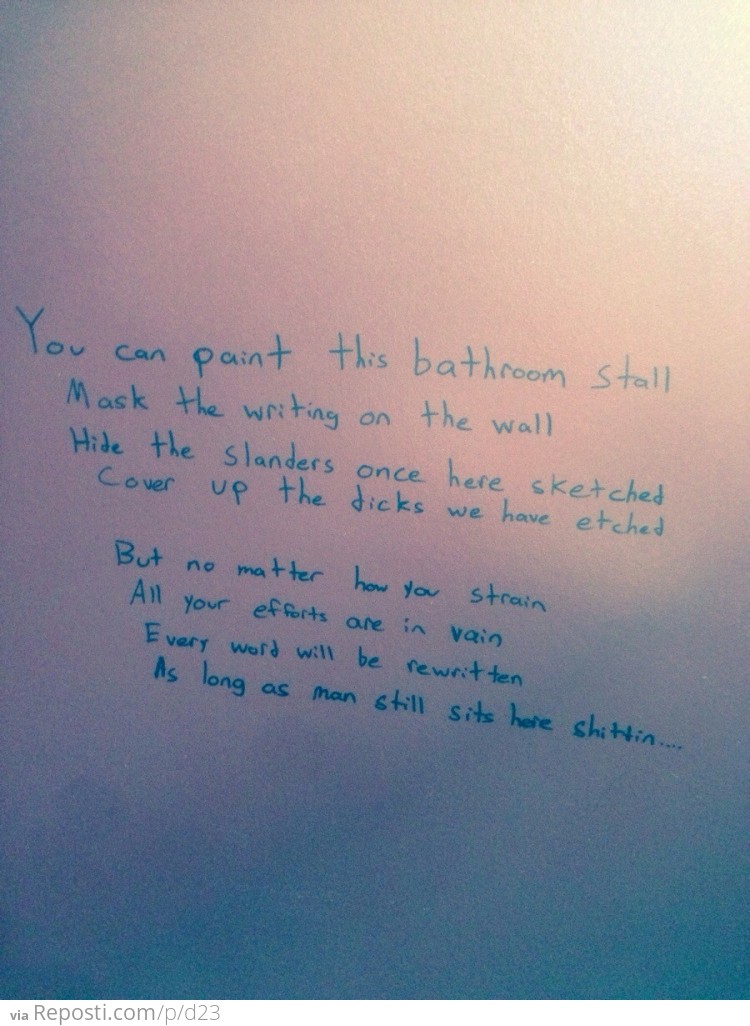 You can paint this bathroom stall
Mask the writing on the wall
Hide the slanders once here sketched
Cover up the dicks we have etched
But no matter how you strain
All your efforts are in vain
Every word will be rewritten
As long as man still sits here shittin....
via Reposti.com/p/d23